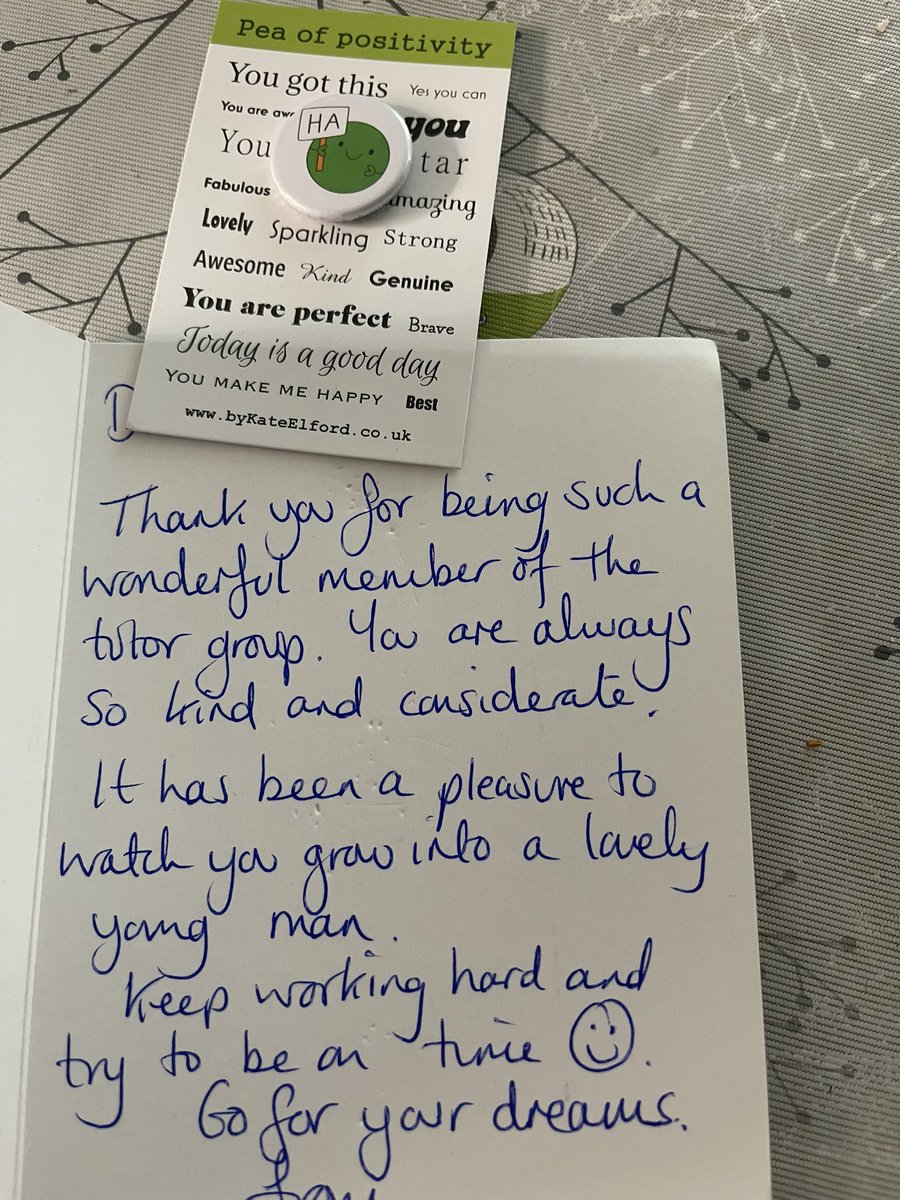 Pea of positivity
You got this Yes you can
You are aw
HA
you
You tar
Fabulous mazing
Lovely Sparkling Strong
Awesome Kind Genuine
You are perfect Brave
Today is a good day
YOU MAKE ME HAPPY Best
www.byKateElford.co.uk
D
Thank you for being such a
wonderful member of the
tutor group. You are always
so kind and considerate.
It has been a pleasure to
watch you grow into a lovely
young man.
Keep working hard and
try to be on time ☺.
Go for your dreams.